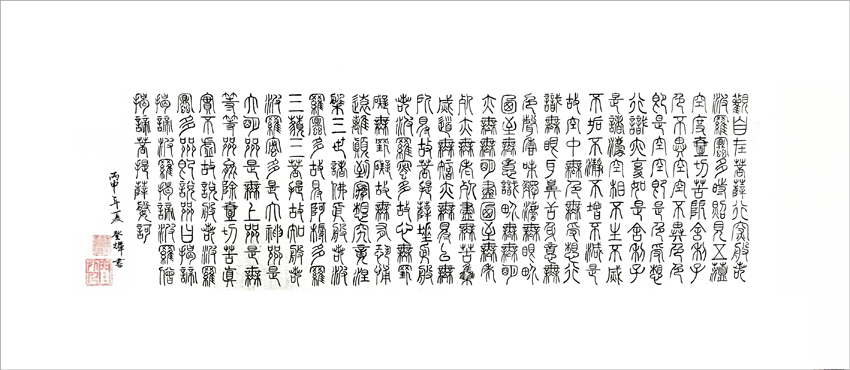 觀自在菩薩行深般若
波羅蜜多時照見五蘊
空度壹切苦厄舍利子
色不異空空不異色色
即是空空即是色受想
行識亦復如是舍利子
是諸法空相不生不滅
不垢不淨不增不減是
故空中無色無受想行
識無眼耳鼻舌身意無
色聲香味觸法無眼界
乃至無意識界無無明
亦無無明盡乃至無老
死亦無老死盡無苦集
滅道無智亦無得以無
所得故菩提薩埵依般
若波羅蜜多故心無罣
礙無罣礙故無有恐怖
遠離顛倒夢想究竟涅
槃三世諸佛依般若波
羅蜜多故得阿耨多羅
三藐三菩提故知般若
波羅蜜多是大神咒是
大明咒是無上咒是無
等等咒能除壹切苦真
實不虛故說般若波羅
蜜多咒即說咒曰揭諦
揭諦波羅揭諦波羅僧
揭諦菩提薩婆訶
丙申年夏 書